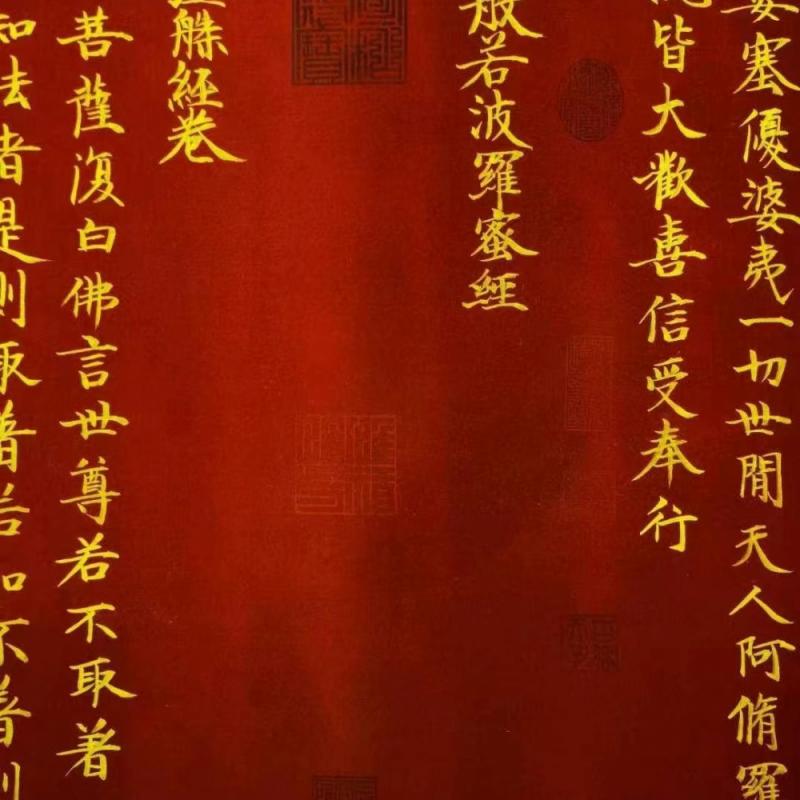 婆塞優婆夷一切世閒天人阿脩羅
皆大歡喜信受奉行
般若波羅蜜經
槃經卷
菩薩復白佛言世尊若不取著
知法者是則取著若不著則